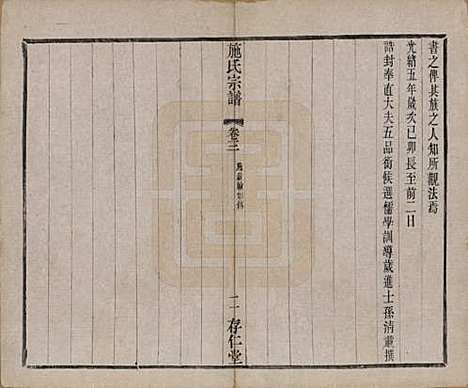 書之俾其族之人知所觀法焉
光緒五年歲次己卯長至前二日
誥封奉直大夫五品銜候選儒學訓導歲進士孫清嚴撰
施氏宗譜
卷三
二
存仁堂